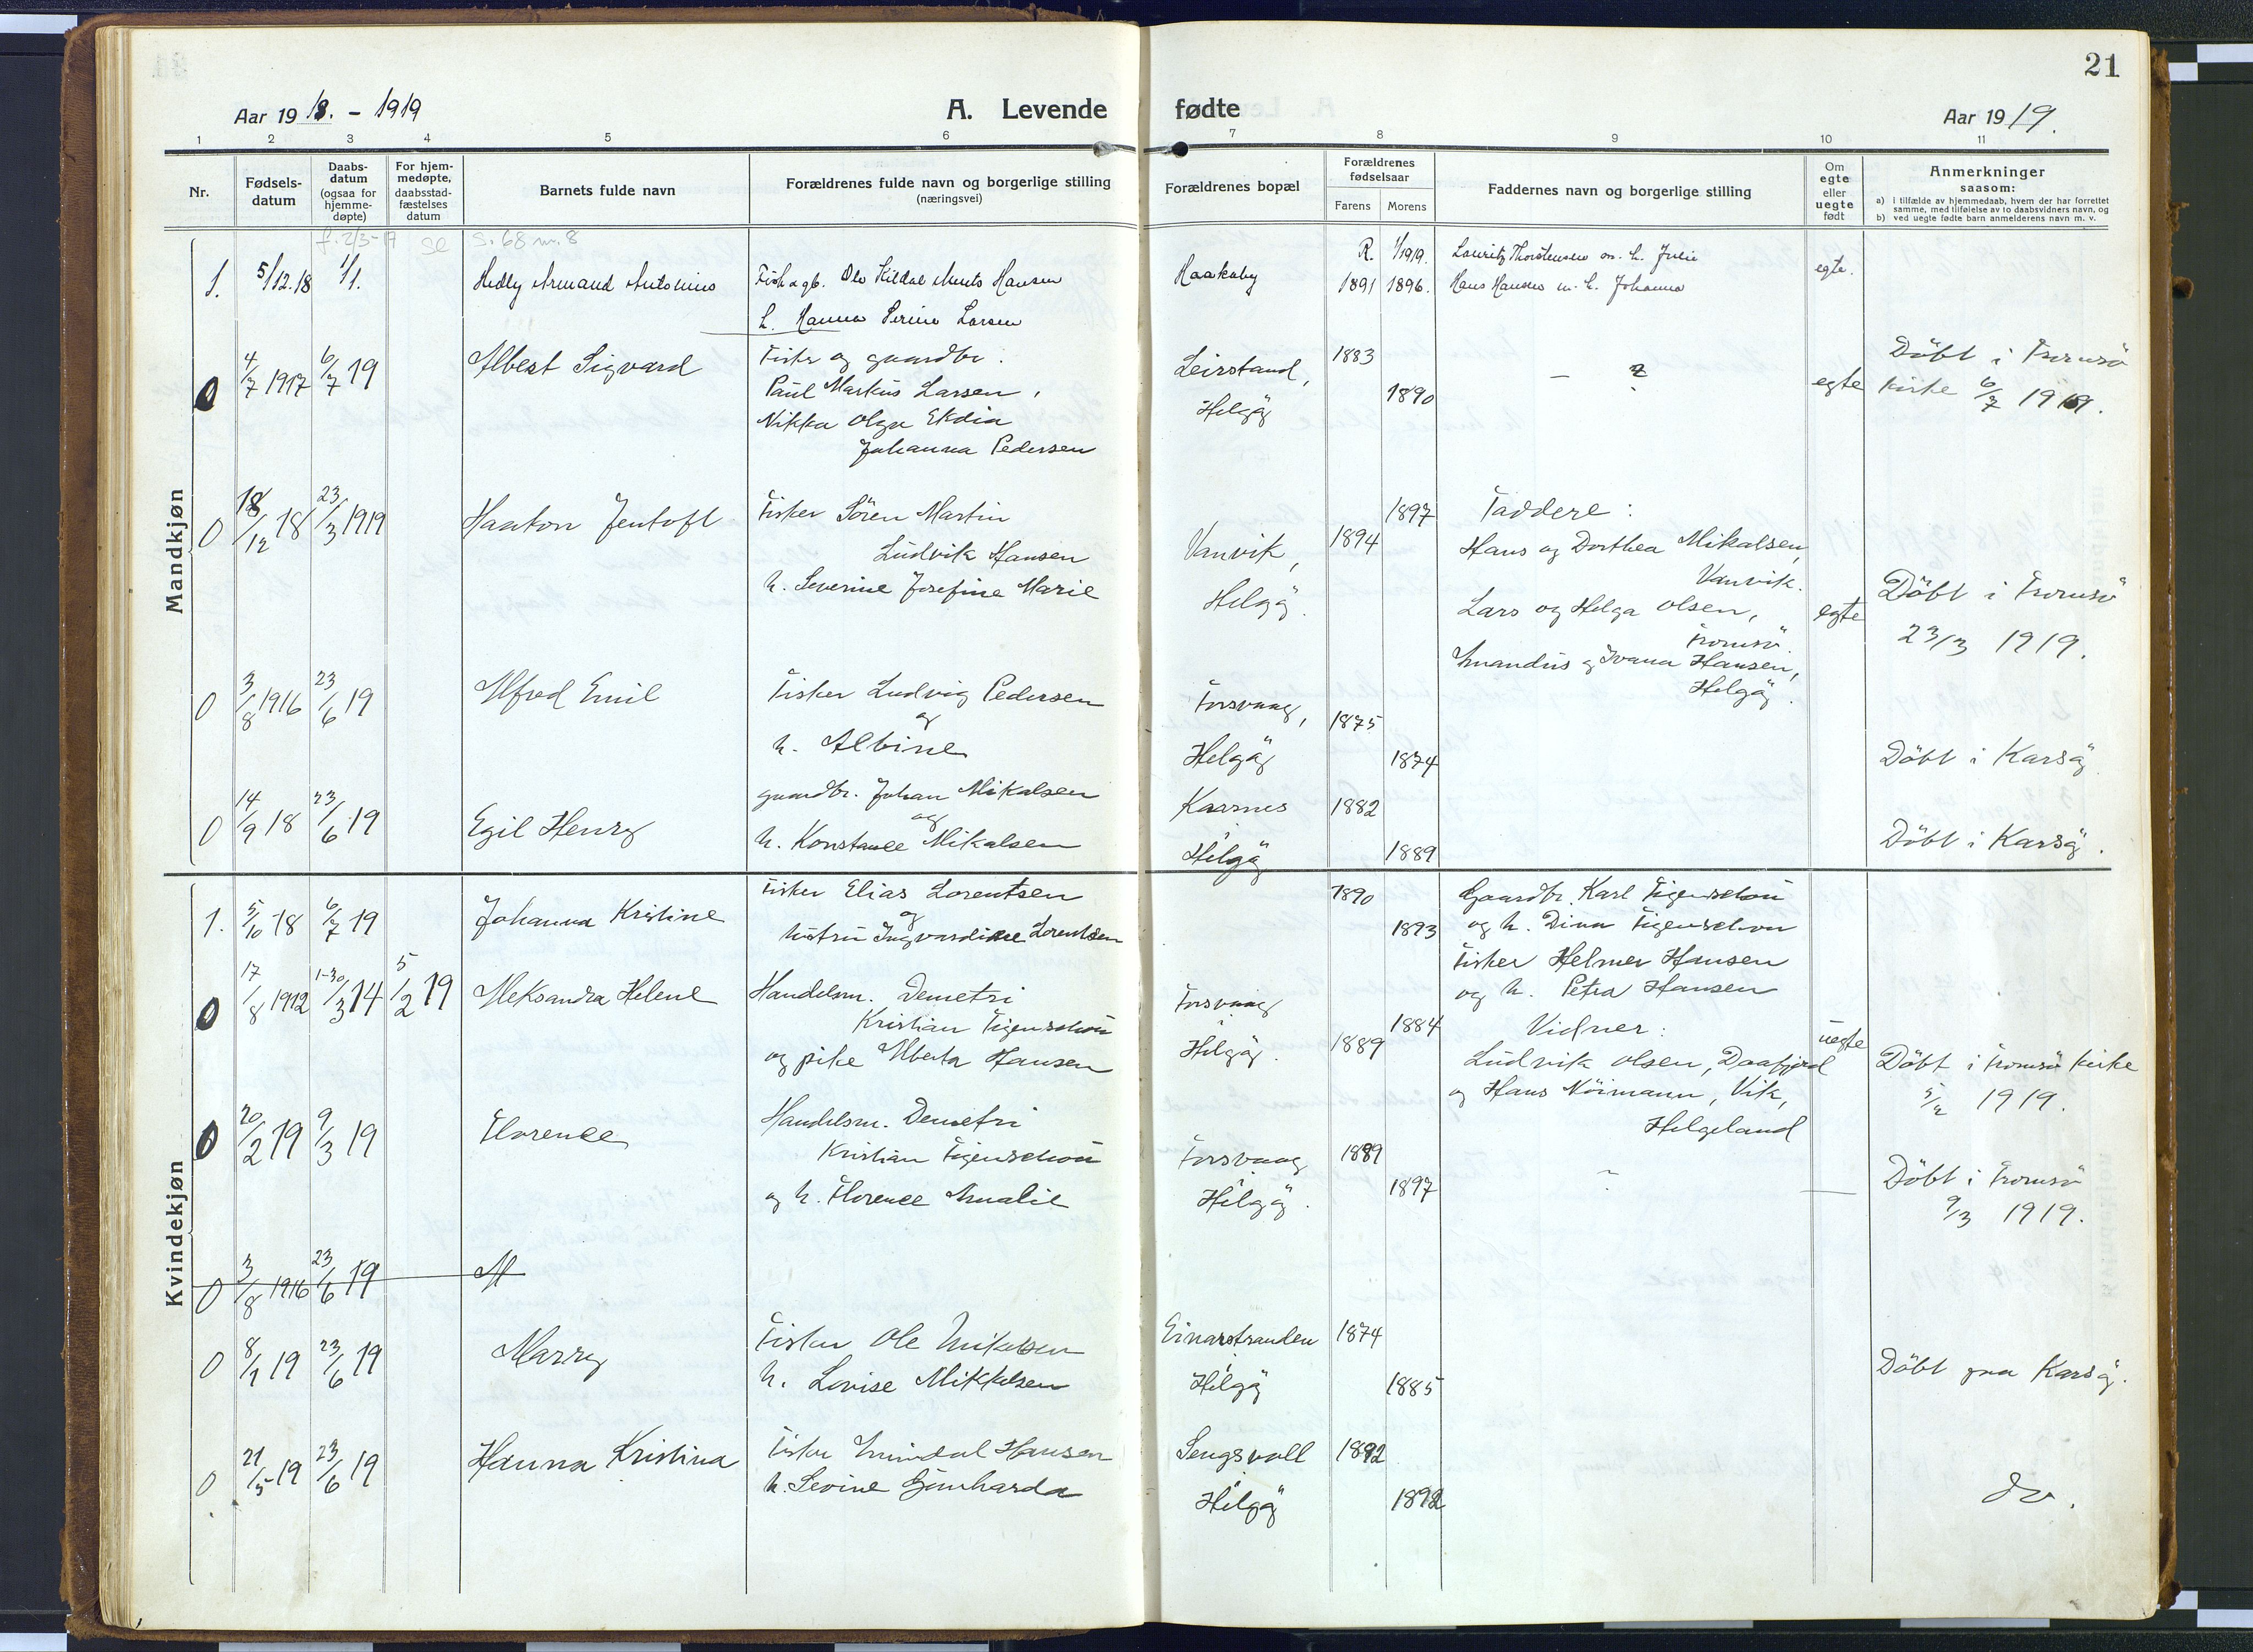 21
Aar 1918. - 1919
A. Levende
fødte
Aar 1919.
1 2 3 4 5 6 7 8 9 10 11
Nr.
Fødsels-
datum
Daabs-
datum
(ogsaa for
hjemme-
døpte)
For hjem-
medøpte,
daabsstad-
fæstelses
datum
Barnets fulde navn
Forældrenes fulde navn og borgerlige stilling
(næringsvei)
Forældrenes bopæl
Forældrenes
fødselsaar
Farens
Morens
Faddernes navn og borgerlige stilling
Om
egte
eller
uegte
født
Anmerkninger
saasom:
a) i tilfælde av hjemmedaab, hvem der har forrettet
samme, med tilføielse av to daabsvidners navn, og
b) ved uegte fødte barn anmelderens navn m. v.
f. 2/3-17 se s. 68 nr. 8
Mandkjøn
1. 5/12.18 1/1. Hedly Armand Antonius
Fisk. og gb. Ole Kildal Ments Hansen
h. Hanna Serine Larsen
Haakøby
R. 1/1919.
1891 1896.
Lauritz Thorstensen m. h. Julie
Hans Hansen m. h. Johanna
egte.
0 4/7 1917 6/7 19 Albert Sigvard
Fisker og gaardbr.
Paul Markus Larsen,
Nikka Olga Ekdia
Johanna Pedersen
Leirstand,
Helgøy
1883
1890
- ?
egte
Döbt i Tromsö
kirke 6/7 1919.
0 18/12 18 23/3 1919 Haakon Jentoft
Fisker Sören Martin
Ludvik Hansen
h. Severine Josefine Marie
Vanvik,
Helgöy.
1894
1897
Faddere:
Hans og Dorthea Mikalsen,
Vanvik.
Lars og Helga Olsen,
Tromsö.
Amandus og Ivana Hansen,
Helgöy.
egte
Döbt i Tromsö
23/3 1919.
0 3/8 1916 23/6 19 Alfred Emil
Fisker Ludvig Pedersen
og
h. Albine
Torsvaag,
Helgöy
1875
1874
Döbt i Karsöy.
0 14/9 18 23/6 19 Egil Henry
gaardbr. Johan Mikalsen
og
h. Konstance Mikalsen
Kaarnes
Helgöy
1882
1889
Döbt i Karsöy.
Kvindekjøn
1. 5/10 18 6/7 19 Johanna Kristine
Fisker Elias Lorentsen
og
hustru Ingvardine Lorentsen
1890
1893
Gaardbr. Karl Figenschou
og h. Dina Figenschou
Fisker Helmer Hansen
og h. Petra Hansen
0 17/8 1912 1-30/3 14 5/2 19 Aleksandra Helene
Handelsm. Demetri
Kristian Figenschou
og pike Alberta Hansen
Torsvaag
Helgöy.
1889
1884
Vidner:
Ludvik Olsen, Daafjord
og Hans Nöimann, Vik,
Helgeland
uegte
Döbt i Tromsö kirke
5/2 1919.
0 20/2 19 9/3 19 Florence
Handelsm. Demetri
Kristian Figenschou
og h. Florence Amalie
Torsvaag
Helgöy.
1889
1897
Döbt i Tromsö
9/3 1919.
0 3/8 1916 23/6 19 Al
0 8/1 19 23/6 19 Marry
Fisker Ole Mikalsen
h. Lovise Mikkelsen
Einarstranden
Helgöy
1874
1885
Döbt paa Karsöy.
0 21/5 19 23/6 19 Hanna Kristina
Fisker Amandal Hansen
h. Sevine Gjønharda
Sengsvoll
Helgöy
1892
1892
do.